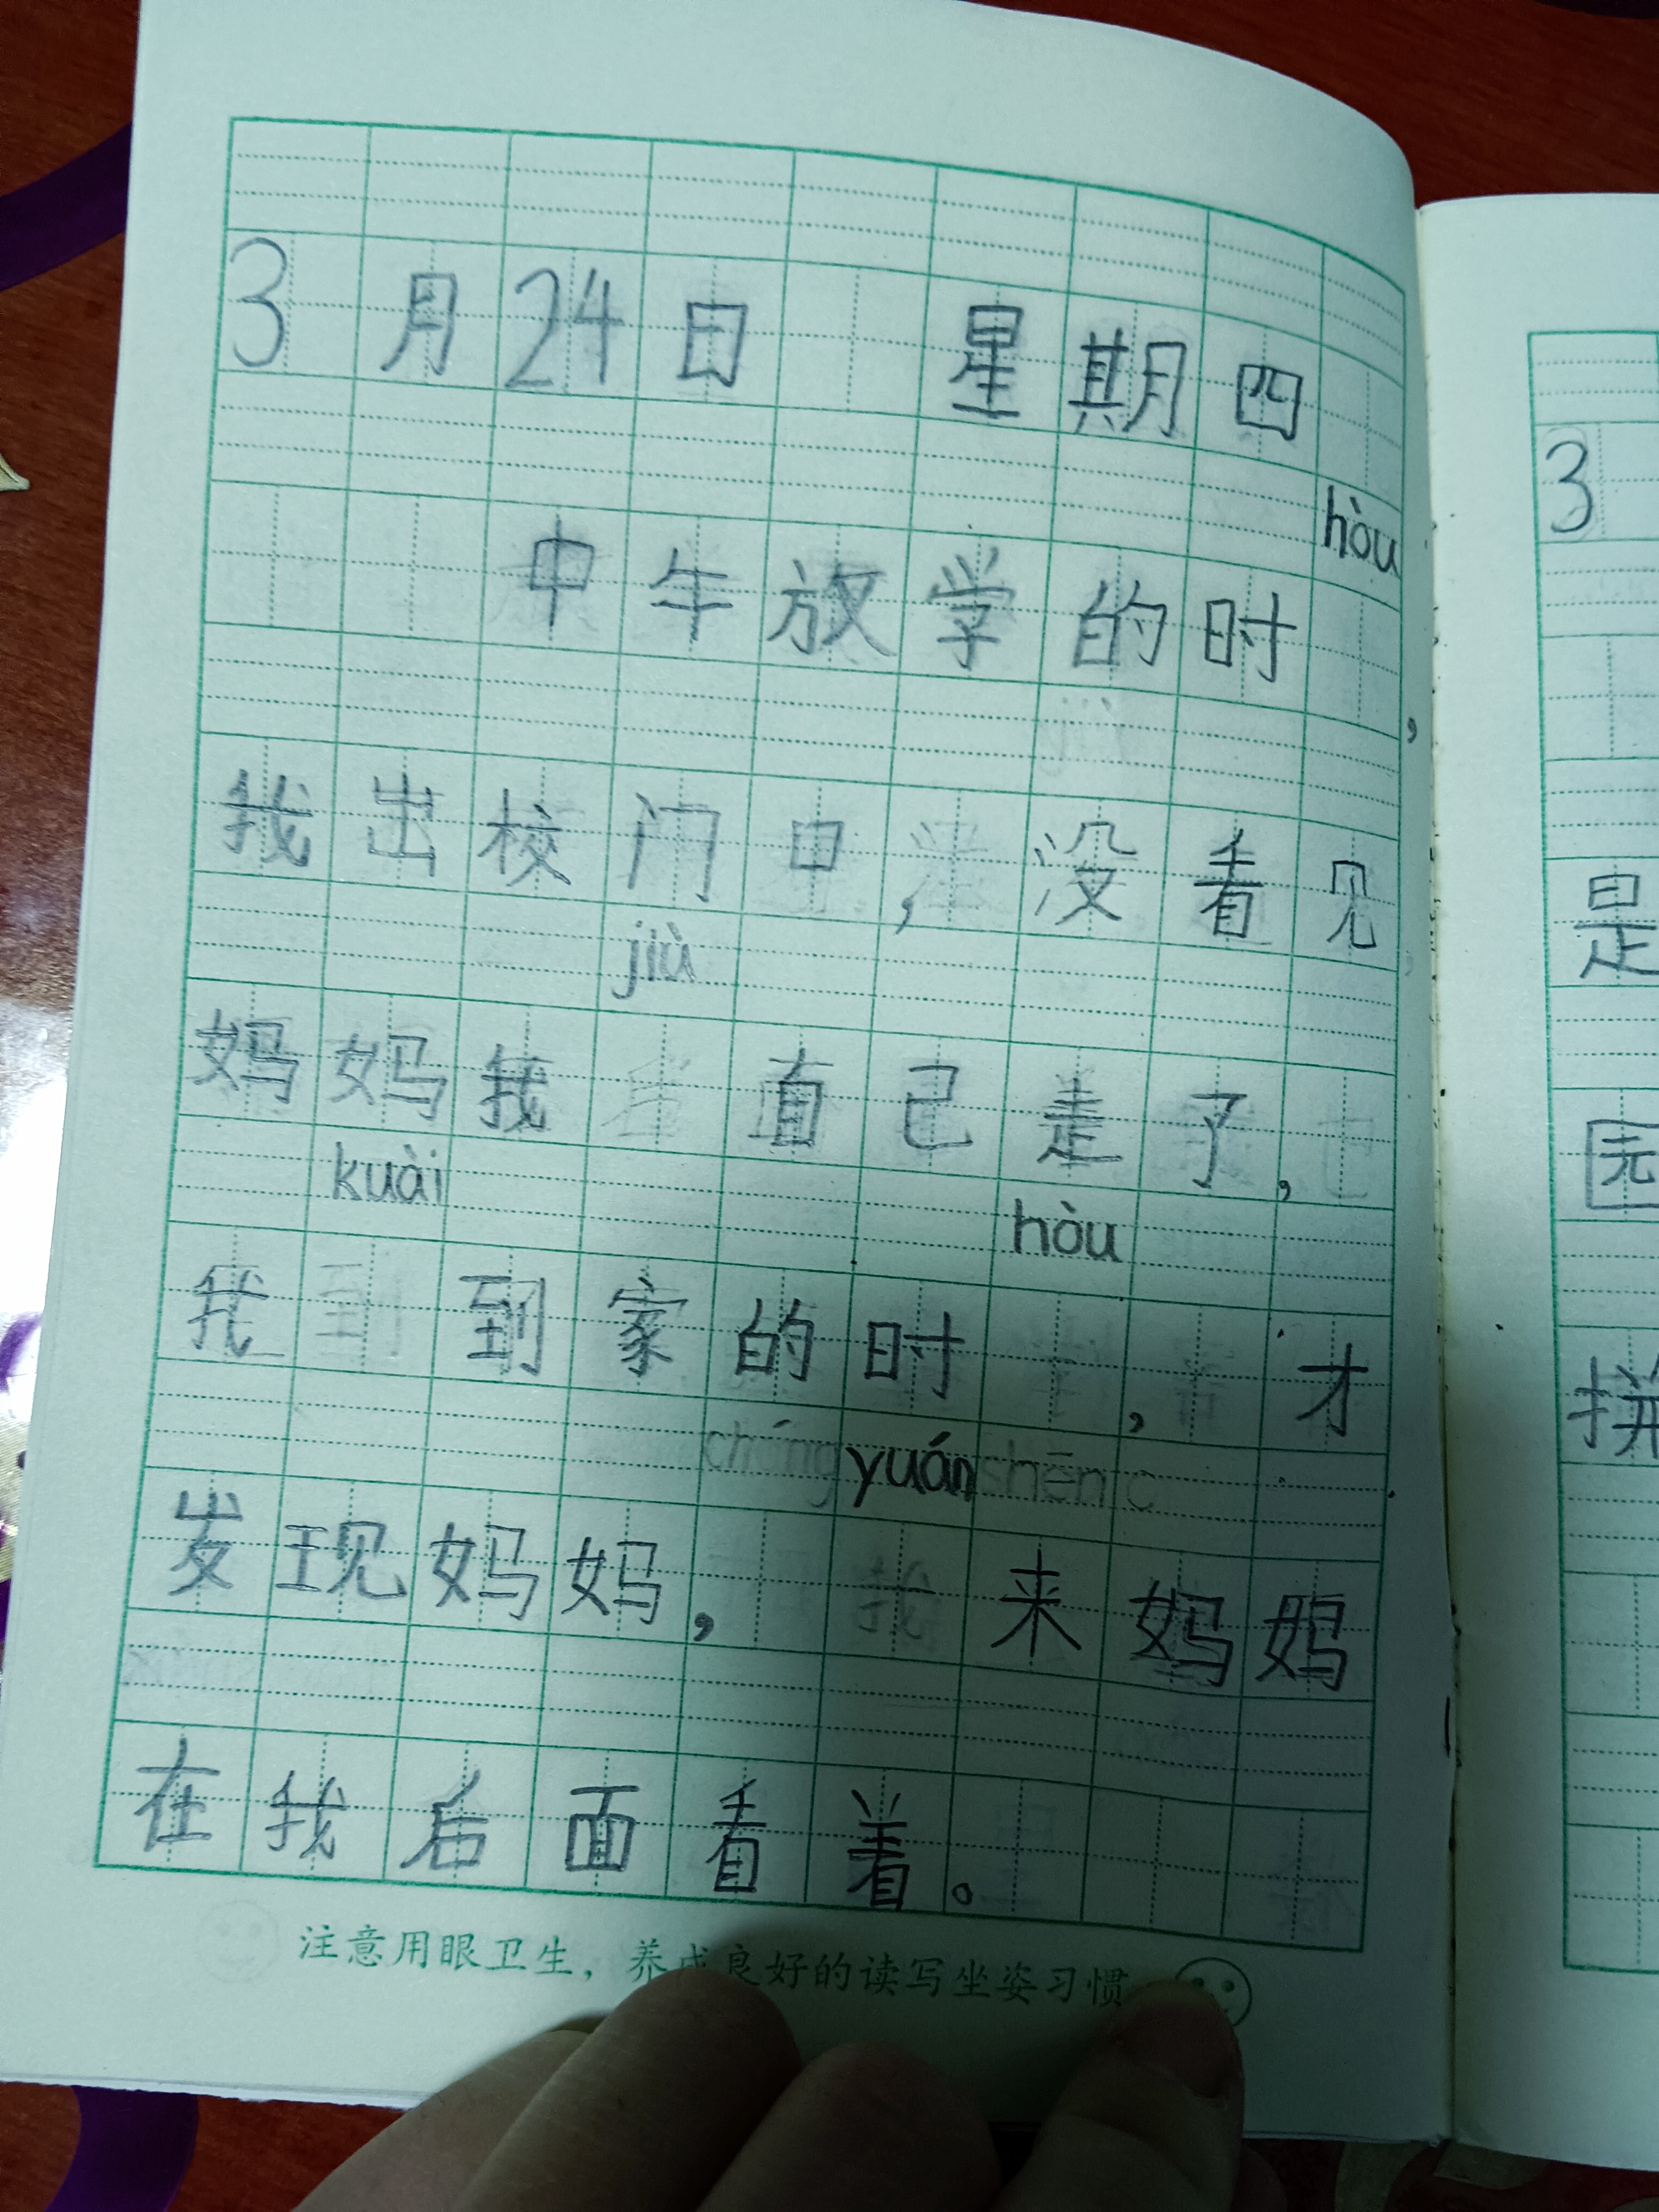 3月24日 星期四
中午放学的时hòu，
我出校门口，没看见
妈妈我jiù自己走了，
kuài
我到家的时hòu，才
发现妈妈，yuán来妈妈
在我后面看着。
注意用眼卫生，养成良好的读写坐姿习惯
3
是
园
拼